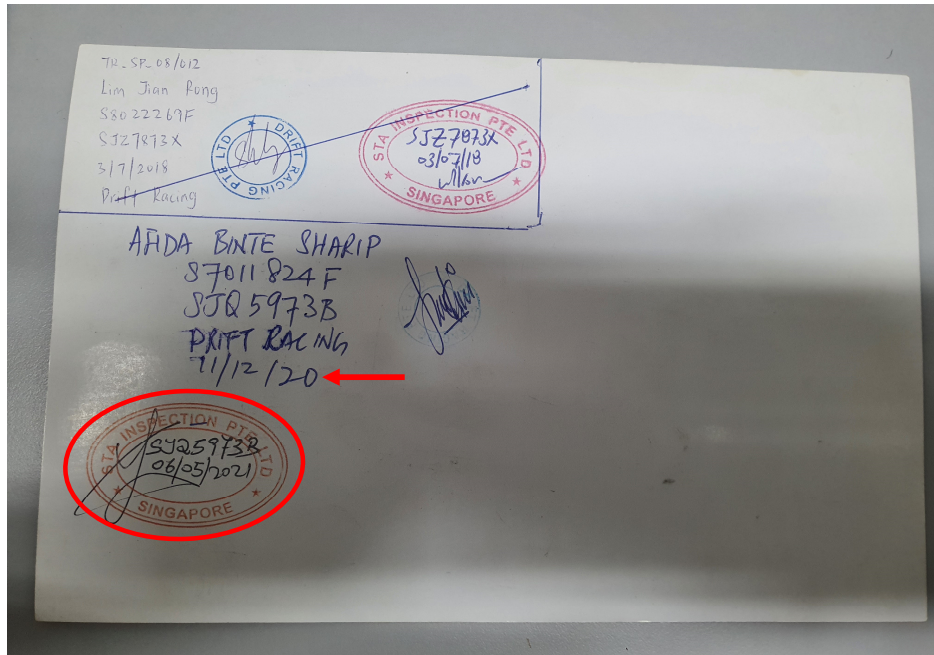 TH_SP_08/012
Lim Jian Rong
S8022269F
SJZ7873X
3/7/2018
Drift Racing
DRIFT RACING PTE LTD
STA INSPECTION PTE LTD
SJZ7873X
03/07/18
SINGAPORE
AFIDA BINTE SHARIP
S7011824F
SJQ5973B
DRIFT RACING
11/12/20
STA INSPECTION PTE LTD
SJQ5973B
06/05/2021
SINGAPORE